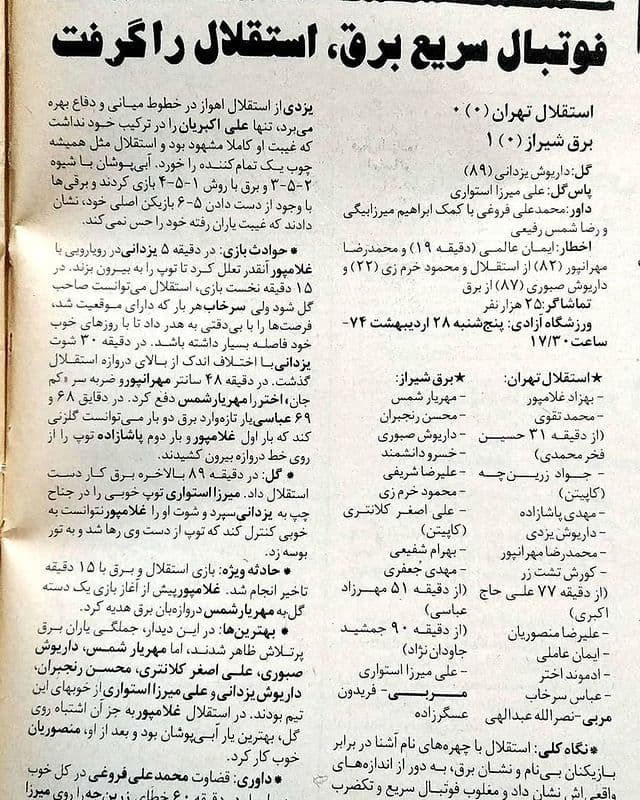 فوتبال سریع برق، استقلال را گرفت
استقلال تهران (۰) ۰
برق شیراز (۰) ۱
گل: داریوش یزدانی (۸۹)
پاس گل: علی میرزا استواری
داور: محمدعلی فروغی با کمک ابراهیم میرزابیگی
و رضا شمس رفیعی
اخطار: ایمان عالمی (دقیقه ۱۹) و محمدرضا
مهرانپور (۸۲) از استقلال و محمود خرم زی (۲۲) و
داریوش صبوری (۸۷) از برق
تماشاگر: ۲۵ هزار نفر
ورزشگاه آزادی: پنج‌شنبه ۲۸ اردیبهشت ۷۴-
ساعت ۱۷/۳۰
★استقلال تهران:
- بهزاد غلامپور
- محمد تقوی
(از دقیقه ۳۱ حسین
فخر محمدی)
- جواد زرین‌چه
(کاپیتن)
- مهدی پاشازاده
- داریوش یزدی
- محمدرضا مهرانپور
- کورش تشت زر
(از دقیقه ۷۷ علی حاج
اکبری)
- علیرضا منصوریان
- ایمان عاملی
- ادموند اختر
- عباس سرخاب
مربی -نصرالله عبدالهی
★برق شیراز:
- مهریار شمس
- محسن رنجبران
- داریوش صبوری
- خسرو دانشمند
- علیرضا شریفی
- محمود خرم زی
- علی اصغر کلانتری
(کاپیتن)
- بهرام شفیعی
- مهدی جعفری
(از دقیقه ۵۱ مهرزاد
عباسی)
(از دقیقه ۹۰ جمشید
جاودان نژاد)
- علی میرزا استواری
مربی- فریدون
عسگرزاده
●نگاه کلی: استقلال با چهره‌های نام آشنا در برابر
بازیکنان بی‌نام و نشان برق، به دور از اندازه‌های
واقعی‌اش نشان داد و مغلوب فوتبال سریع و تکضرب
یزدی از استقلال اهواز در خطوط میانی و دفاع بهره
می‌برد، تنها علی اکبریان را در ترکیب خود نداشت
که غیبت او کاملا مشهود بود و استقلال مثل همیشه
چوب یک تمام‌کننده را خورد. آبی‌پوشان با شیوه
۲-۵-۳ و برق با روش ۱-۵-۴ بازی کردند و برقی‌ها
با وجود از دست دادن ۵-۶ بازیکن اصلی خود، نشان
دادند که غیبت یاران رفته خود را حس نمی‌کند.
● حوادث بازی: در دقیقه ۵ یزدانی در رویارویی با
غلامپور آنقدر تعلل کرد تا توپ را به بیرون بزند. در
۱۵ دقیقه نخست بازی، استقلال می‌توانست صاحب
گل شود ولی سرخاب هر بار که دارای موقعیت شد،
فرصت‌ها را با بی‌دقتی به هدر داد تا با روزهای خوب
خود فاصله بسیار داشته باشد. در دقیقه ۳۰ شوت
یزدانی با اختلاف اندک از بالای دروازه استقلال
گذشت. در دقیقه ۴۸ سانتر مهرانپور و ضربه سر «کم
جان» اختر را مهریار شمس دفع کرد. در دقایق ۶۸ و
۶۹ عباسی یار تازه‌وارد برق دو بار می‌توانست گلزنی
کند که بار اول غلامپور و بار دوم پاشازاده توپ را از
روی خط دروازه بیرون کشیدند.
● گل: در دقیقه ۸۹ بالاخره برق کار دست
استقلال داد. میرزا استواری توپ خوبی را در جناح
چپ به یزدانی سپرد و شوت او را غلامپور نتوانست به
خوبی کنترل کند که توپ از دست وی رها شد و به تور
بوسه زد.
● حادثه ویژه: بازی استقلال و برق با ۱۵ دقیقه
تاخیر انجام شد. غلامپور پیش از آغاز بازی یک دسته
گل به مهریار شمس دروازه‌بان برق هدیه کرد.
● بهترین‌ها: در این دیدار، جملگی یاران برق
پرتلاش ظاهر شدند، اما مهریار شمس، داریوش
صبوری، علی اصغر کلانتری، محسن رنجبران،
داریوش یزدانی و علی میرزا استواری از خوبهای این
تیم بودند. در استقلال غلامپور به جز آن اشتباه روی
گل، بهترین یار آبی‌پوشان بود و بعد از او، منصوریان
خوب کار کرد.
● داوری: قضاوت محمدعلی فروغی در کل خوب
دقیقه ۶۰ خطای زرین‌چه را روی میرزا